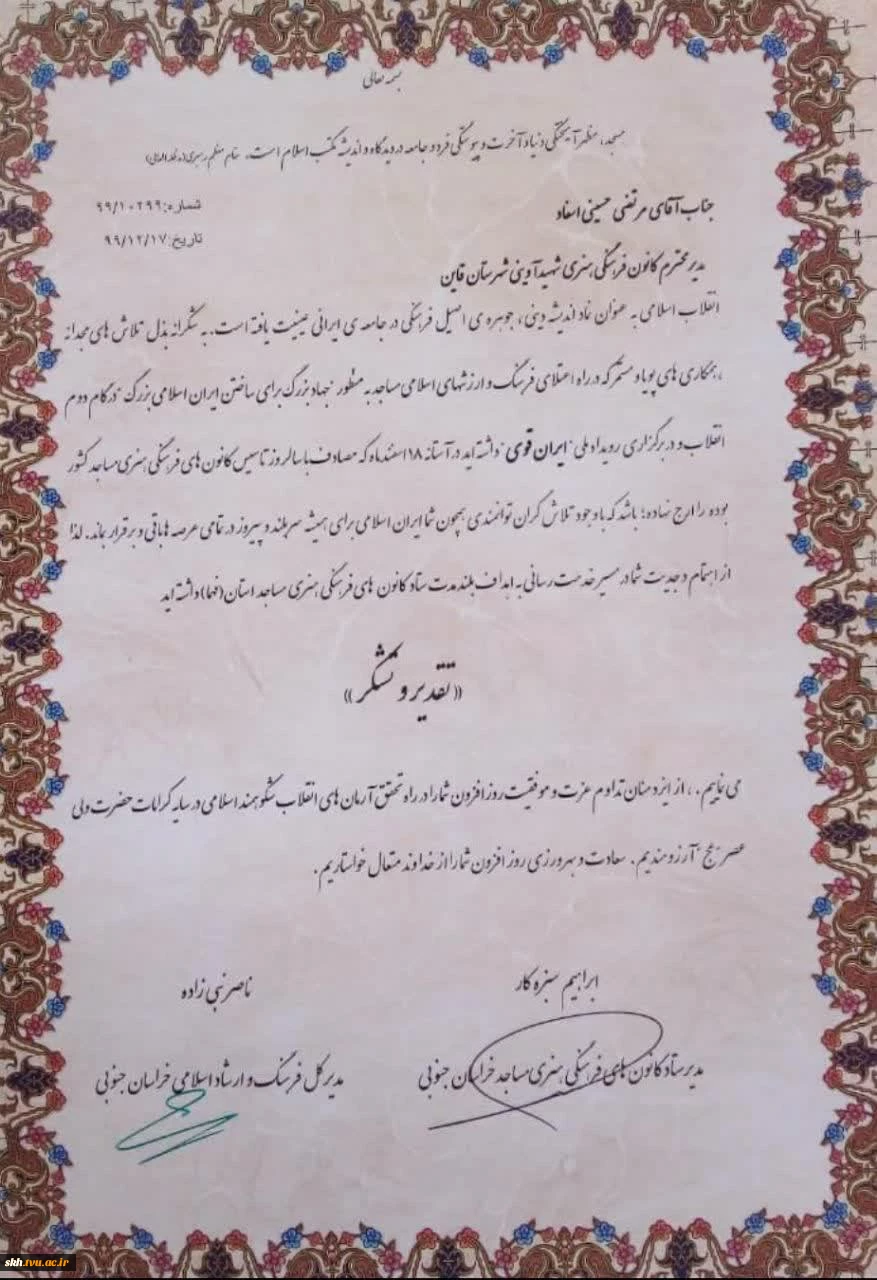 بسمه تعالی
مسجد، مظهر آمیختگی دنیا و آخرت و پیوستگی فرد و جامعه در دیدگاه و اندیشه مکتب اسلام است. مقام معظم رهبری(مدظله العالی)
جناب آقای مرتضی حسینی اسفاد
شماره:۹۹/۱۰۲۹۹
تاریخ:۹۹/۱۲/۱۷
مدیر محترم کانون فرهنگی هنری شهید آوینی شهرستان قاین
انقلاب اسلامی به عنوان نماد اندیشه دینی، جوهره ی اصیل فرهنگی در جامعه ی ایرانی عینیت یافته است. به شکرانه بذل تلاش های مجدانه
، همکاری های پویا و مستمر که در راه اعتلای فرهنگ و ارزشهای اسلامی مساجد به منظور "جهاد بزرگ برای ساختن ایران اسلامی بزرگ" در گام دوم
انقلاب و در برگزاری رویداد ملی "ایران قوی" داشته اید در آستانه ۱۸ اسفند ماه که مصادف با سالروز تاسیس کانون های فرهنگی هنری مساجد کشور
بوده را ارج نهاده؛ باشد که با وجود تلاش گران توانمندی همچون شما ایران اسلامی برای همیشه سربلند و پیروز در تمامی عرصه ها باقی و برقرار بماند. لذا
از اهتمام و جدیت شما در مسیر خدمت رسانی به اهداف بلند مدت ستاد کانون های فرهنگی هنری مساجد استان(فهما) داشته اید
«تقدیر و تشکر»
می نماییم. ، از ایزد منان تداوم عزت و موفقیت روز افزون شما را در راه تحقق آرمان های انقلاب شکوهمند اسلامی در سایه کرامات حضرت ولی
عصر "عج" آرزومندیم. سعادت و بهروزی روز افزون شما را از خداوند متعال خواستاریم.
ابراهیم سبزه کار
ناصر نبی زاده
مدیر ستاد کانون های فرهنگی هنری مساجد خراسان جنوبی
مدیر کل فرهنگ و ارشاد اسلامی خراسان جنوبی
skh.tvu.ac.ir